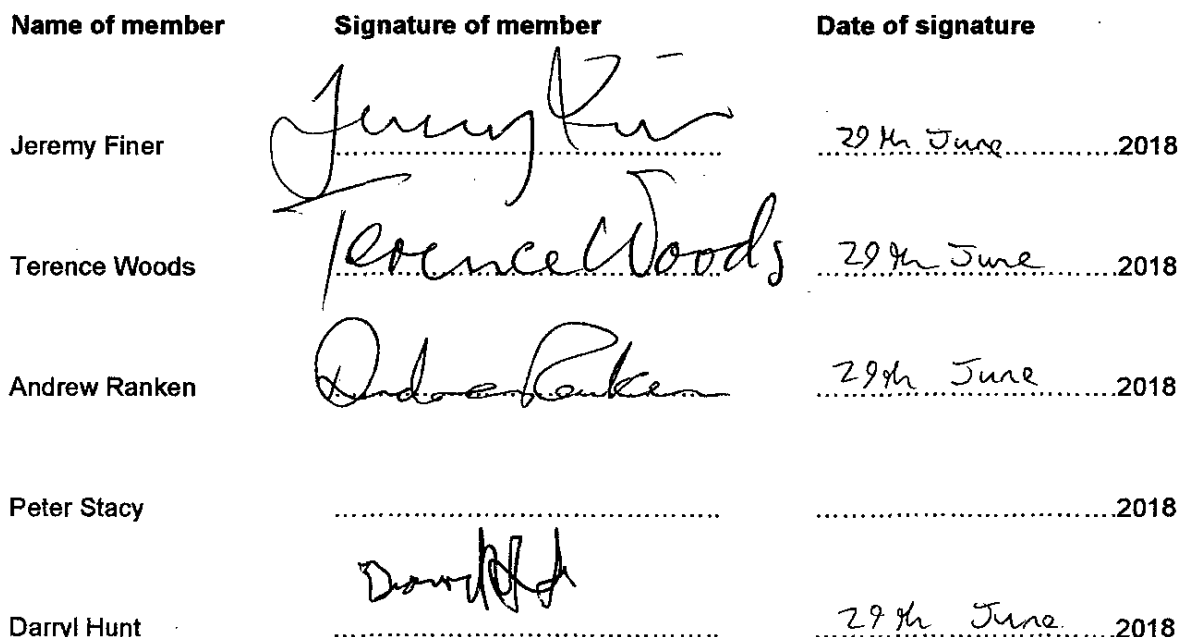 Name of member Signature of member Date of signature
Jeremy Finer Jeremy Fin 29th June 2018
Terence Woods Terence Woods 29th June 2018
Andrew Ranken Andrew Ranken 29th June 2018
Peter Stacy 2018
Darryl Hunt 29th June 2018